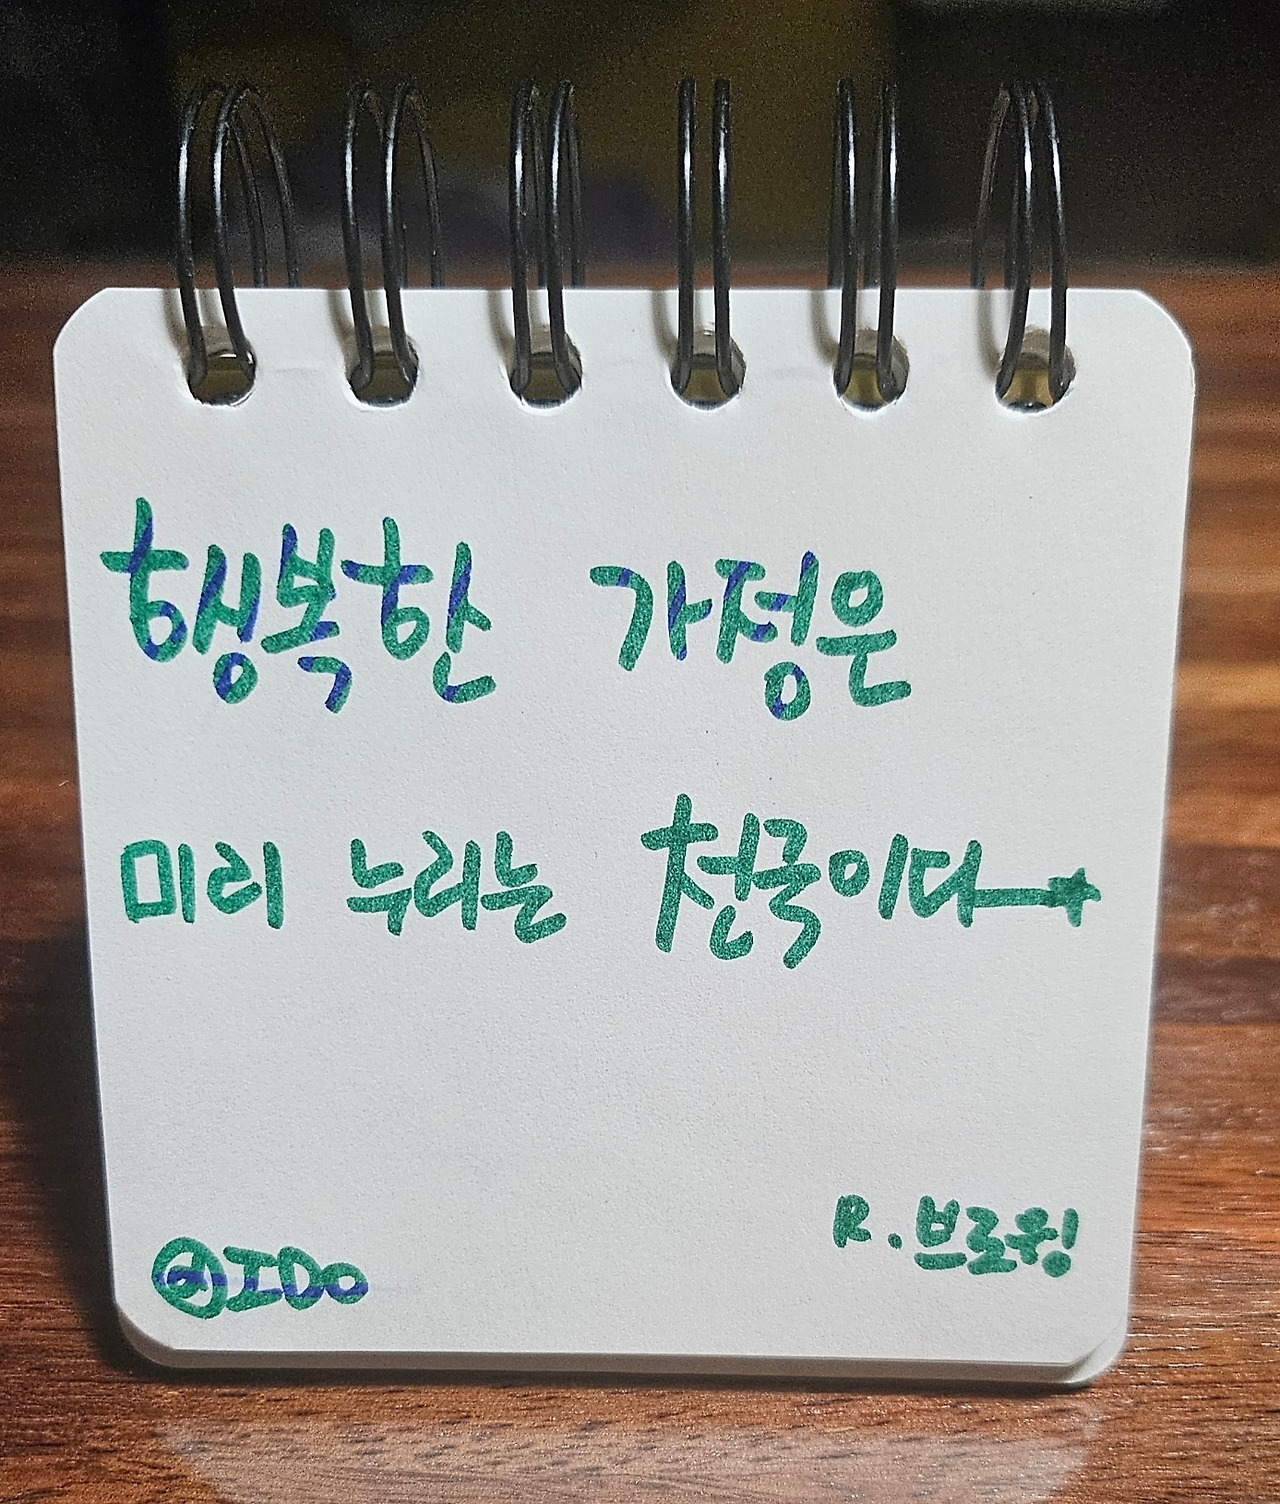 행복한 가정은
미리 누리는 천국이다
R. 브로우닝
@IDo